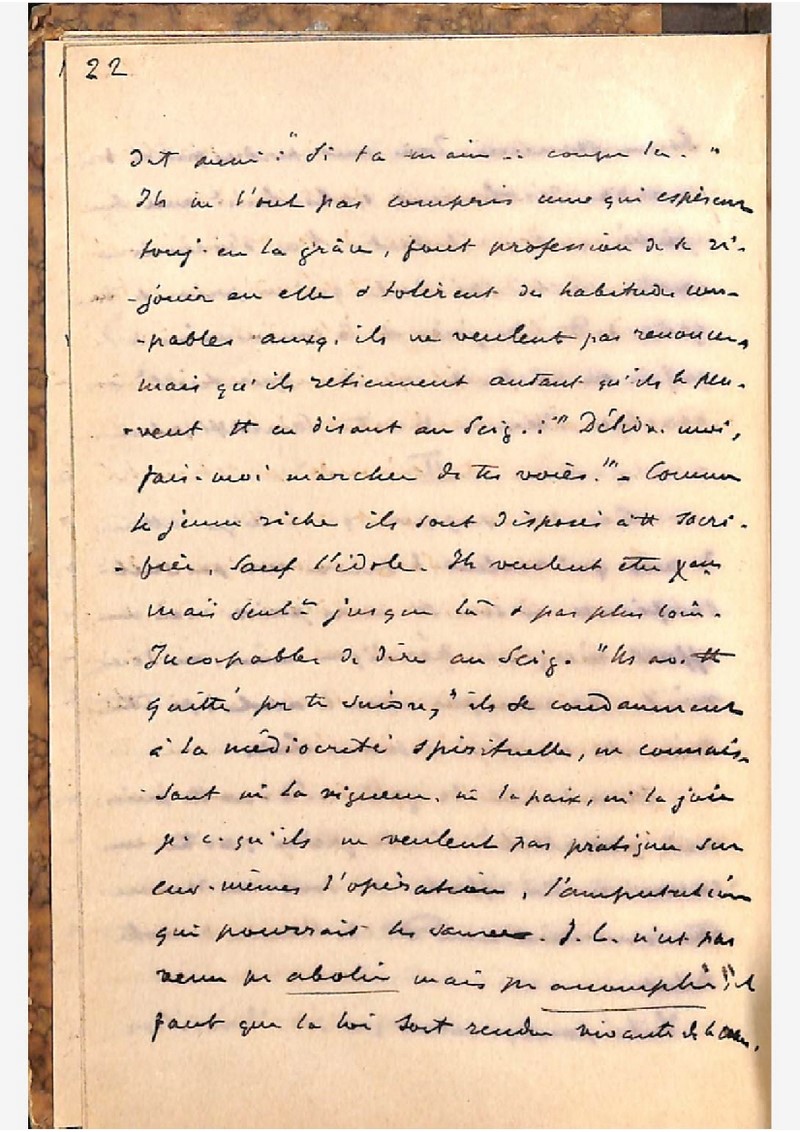 22
dit aussi : "Si ta main .. coupe la. "
Ils ne l'ont pas compris ceux qui espérant
touj. en la grâce, font profession de se ré-
-jouir en elle & tolèrent des habitudes cou-
-pables auxq. ils ne veulent pas renoncer,
mais qu'ils retiennent autant qu'ils le peu-
-vent tt en disant au Seig. : "Délivre moi,
fais-moi marcher ds tes voies." - Comme
le jeune riche ils sont disposés à tt sacri-
-fier, sauf l'idole. Ils veulent être
mais seult jusque là & pas plus loin.
Incapables de dire au Seig. "Ns av. tt
quitté pr te suivre," ils se condamnent
à la médiocrité spirituelle, ne connais-
-sant ni la vigueur, ni la paix, ni la joie
p. c. qu'ils ne veulent pas pratiquer sur
eux-mêmes l'opération, l'amputation
qui pourrait les sauver. J. C. n'est pas
venu pr abolir mais pr accomplir" il
faut que la loi soit rendue vivante ds le cœur,